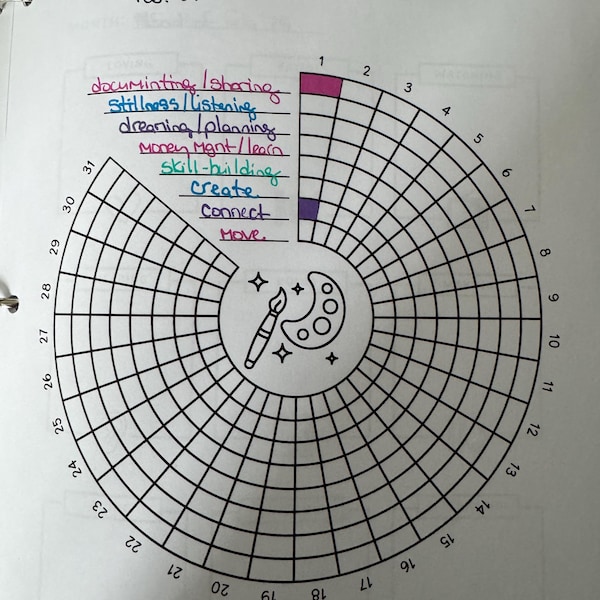 documinting/sharing
stillness/listening
dreaming/planning
money mgnt/learn
skill-building
create
connect
move
1
2
3
4
5
6
7
8
9
10
11
12
13
14
15
16
17
18
19
20
21
22
23
24
25
26
27
28
29
30
31